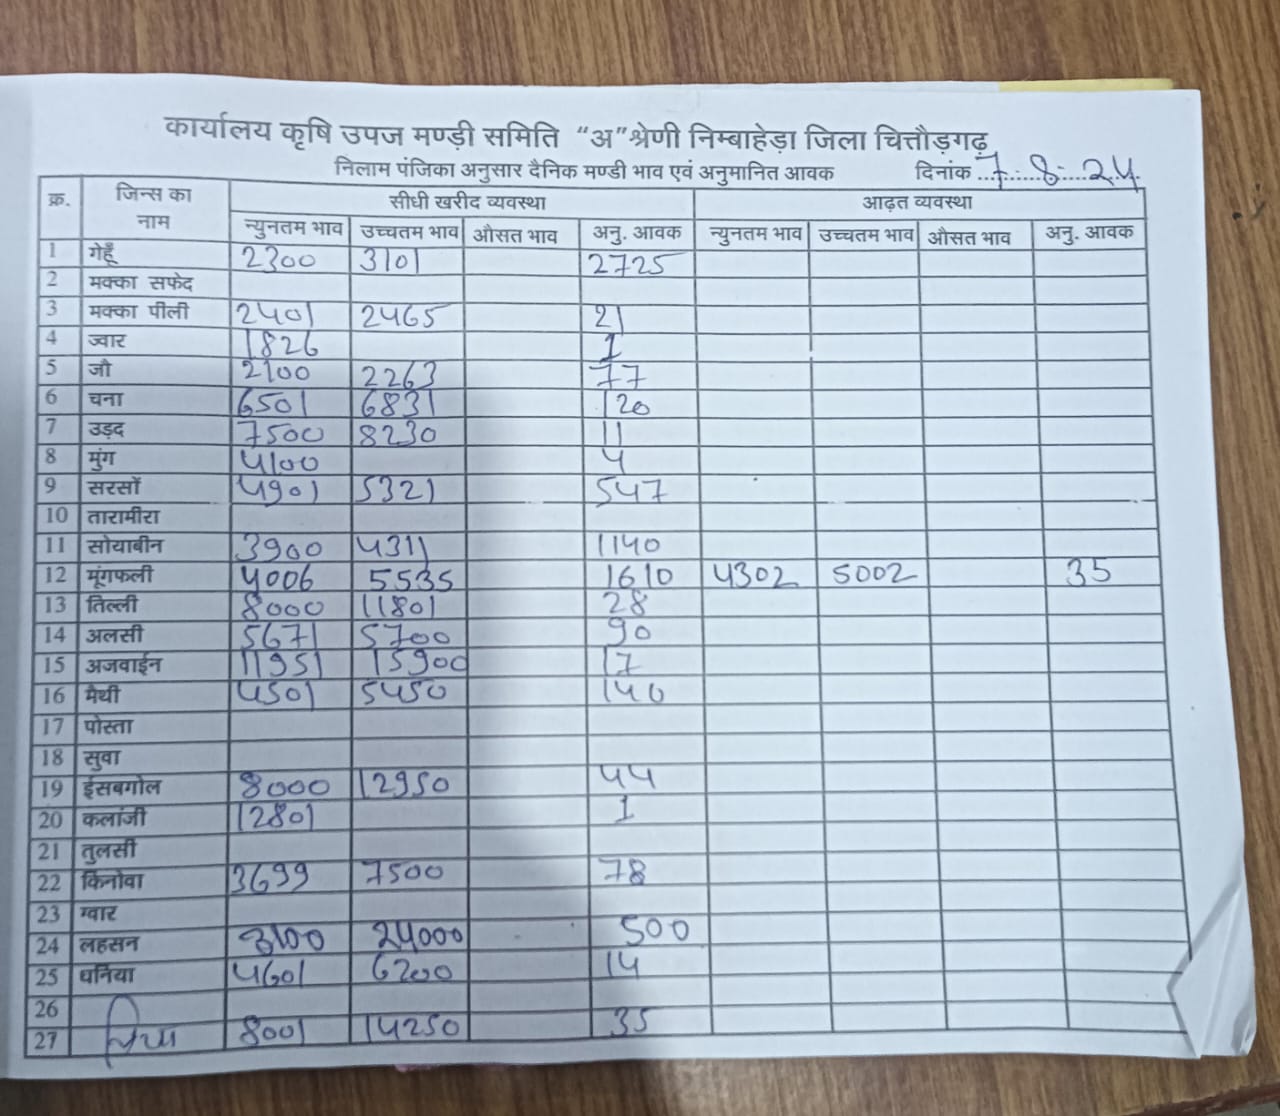 कार्यालय कृषि उपज मण्ड़ी समिति "अ" श्रेणी निम्बाहेड़ा जिला चित्तौड़गढ़
निलाम पंजिका अनुसार दैनिक मण्डी भाव एवं अनुमानित आवक दिनांक 7.8.24
क्र. जिन्स का नाम सीधी खरीद व्यवस्था आढ़त व्यवस्था
न्युनतम भाव उच्चतम भाव औसत भाव अनु. आवक न्युनतम भाव उच्चतम भाव औसत भाव अनु. आवक
1 गेहूँ 2300 3101 2725
2 मक्का सफेद
3 मक्का पीली 2401 2465 21
4 ज्वार 1826 1
5 जौ 2100 2263 77
6 चना 6501 6831 120
7 उड़द 7500 8230 11
8 मुंग 4100 4
9 सरसों 4901 5321 547
10 तारामीरा
11 सोयाबीन 3900 4311 1140
12 मूंगफली 4006 5535 1610 4302 5002 35
13 तिल्ली 8000 11801 28
14 अलसी 5671 5700 90
15 अजवाईन 11951 15900 17
16 मैथी 4501 5450 140
17 पोस्ता
18 सुवा
19 ईसबगोल 8000 12950 44
20 कलांजी 12801 1
21 तुलसी
22 किनोवा 3699 7500 78
23 ग्वार
24 लहसन 3100 24000 500
25 धनिया 4601 6200 14
26
27 8001 14250 35